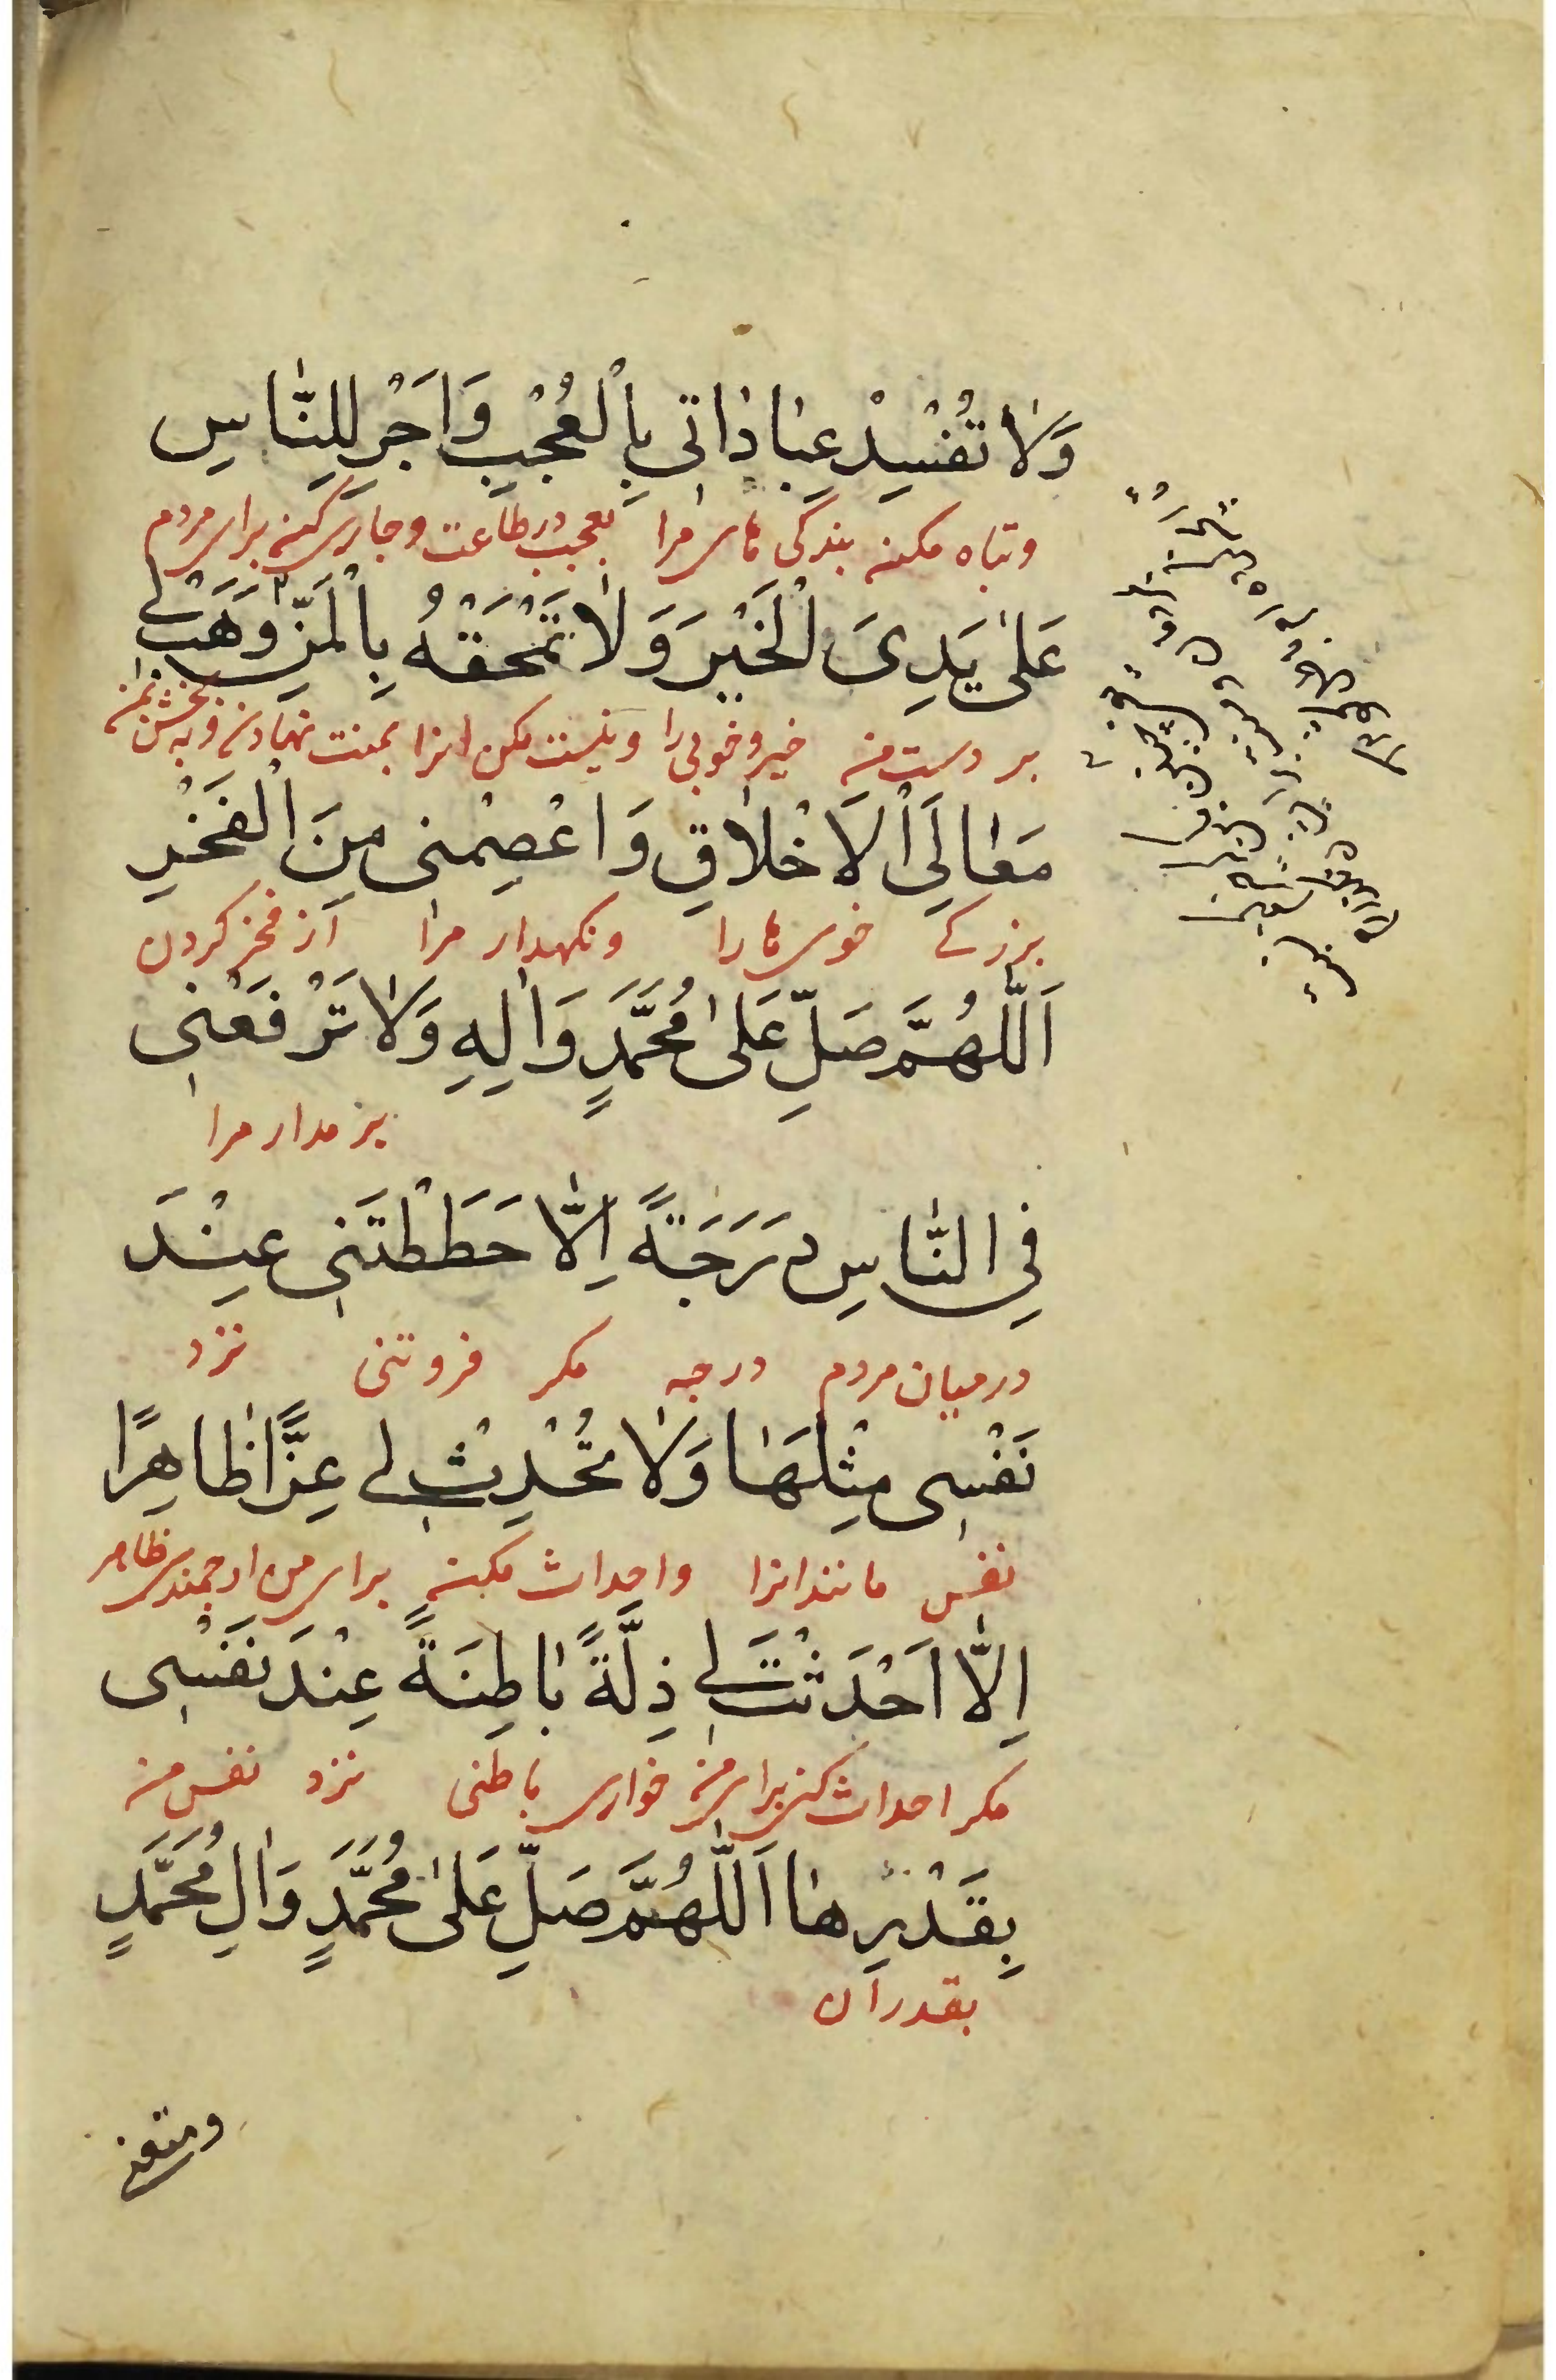 وَلَا تُفْسِدْ عِبَادَاتِي بِالْعُجْبِ وَاَجْرِ لِلنَّاسِ
و تباه مکن بندگی های مرا بعجب در طاعت و جاری کن برای مردم
عَلَىٰ يَدِيَ الْخَيْرَ وَلَا تَمْحَقْهُ بِالْمَنِّ وَهَبْ لِي
بر دست من خیر و خوبی را و نیست مکن انرا بمنت نهادن و ببخش بمن
مَعَالِيَ الْاَخْلَاقِ وَاعْصِمْنِي مِنَ الْفَخْرِ
بزرگے خوی ها را و نکهدار مرا از فخر کردن
اَللّٰهُمَّ صَلِّ عَلَىٰ مُحَمَّدٍ وَاٰلِهِ وَلَا تَرْفَعْنِي
بر مدار مرا
فِي النَّاسِ دَرَجَةً اِلَّا حَطَطْتَنِي عِنْدَ
در میان مردم درجه مکر فروتنی نزد
نَفْسِي مِثْلَهَا وَلَا تُحْدِثْ لِي عِزًّا ظَاهِرًا
نفس مانند انرا و احداث مکن برای من ارجمندی ظاهر
اِلَّا اَحْدَثْتَ لِي ذِلَّةً بَاطِنَةً عِنْدَ نَفْسِي
مکر احداث کنی برای من خواری باطنی نزد نفس من
بِقَدْرِهَا اَللّٰهُمَّ صَلِّ عَلَىٰ مُحَمَّدٍ وَاٰلِ مُحَمَّدٍ
بقدر ان
ومتعنی